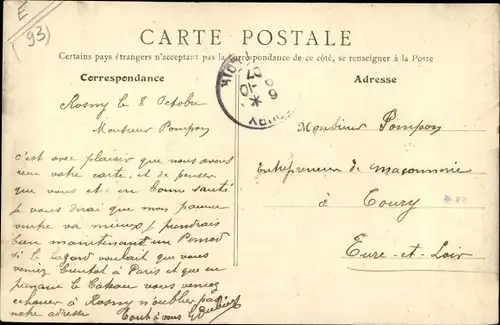 E
(93)
CARTE POSTALE
Certains pays étrangers n'acceptant pas la correspondance de ce côté, se renseigner à la Poste
Correspondance
Adresse
Rosny le 8 Octobre
Monsieur Pompon
c'est avec plaisir que nous avons
reçu votre carte, et de penser
que vous et en bonne santé
je vous dirai que mon pauvre
ventre va mieux je prendrais
bien maintenant un
si le hazard voulait que vous
veniez bientot à Paris et que en
prenant le bateau vous veniez
echouer a Rosny n'oublier pas
notre adresse Tout à vous
Monsieur Pompon
Entrepreneur de maçonnerie
à Toury
Eure-et-Loir